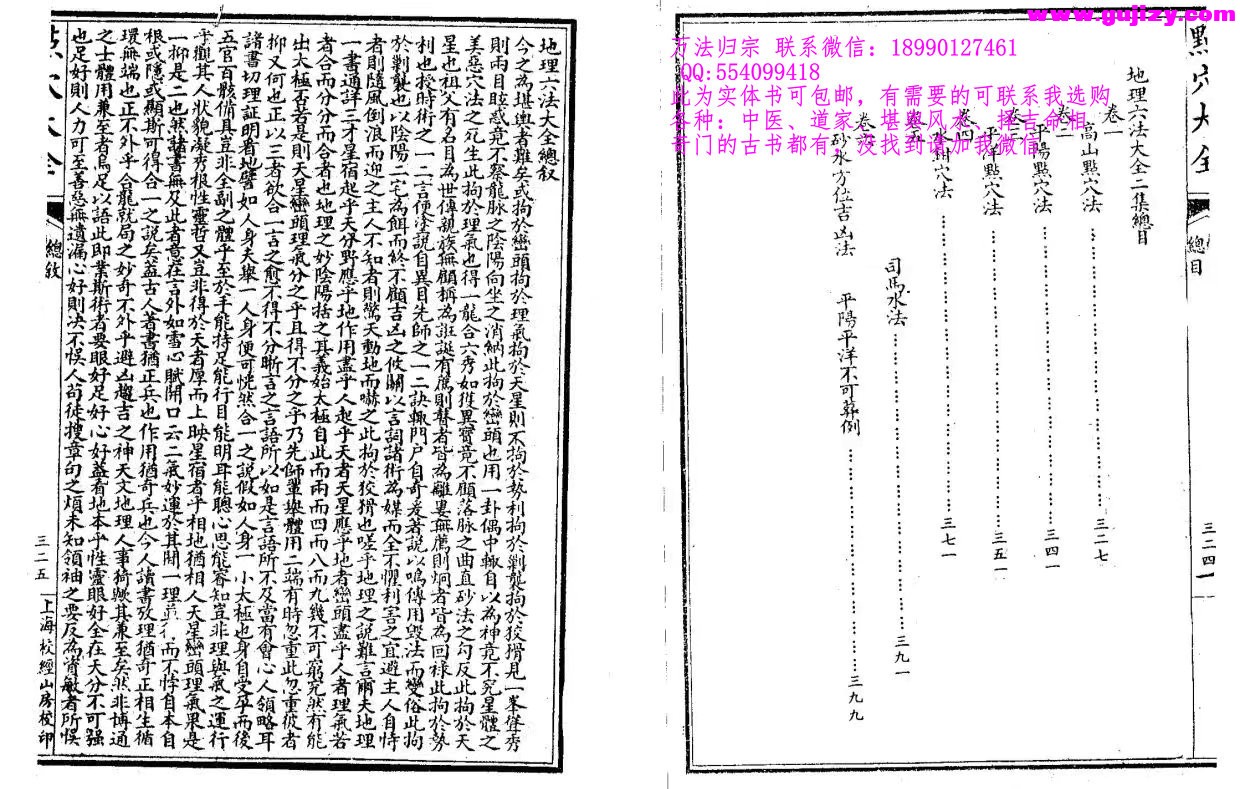 www.gujizy.com
万法归宗 联系微信：18990127461
QQ:554099418
此为实体书可包邮，有需要的可联系我选购
各种：中医、道家、堪舆风水、择吉命相、
奇门的古书都有，没找到请加我微信
點穴大全
總目
三二四
地理六法大全二集總目
卷一
高山點穴法 三二七
卷二
平陽點穴法 三四一
卷三
平洋點穴法 三五一
卷四
穴法 三七一
卷五
司馬水法 三九一
卷六
砂水方位吉凶法 平陽平洋不可葬例 三九九
地理六法大全總敘
今之為堪輿者難矣或拘於巒頭拘於理氣拘於天星則不拘於勢利拘於剿襲拘於狡猾見一峯聳秀
則兩目眩惑竟不察龍脈之陰陽向坐之消納此拘於巒頭也用一卦偶中輒自以為神竟不究星體之
美惡穴法之死生此拘於理氣也得一龍合六秀如獲異寶竟不顧落脈之曲直砂法之勾反此拘於天
星也祖父有名目為世傳親族無顧稱為誑誕有薦則瞽者皆為離婁無薦則炯者皆為回祿此拘於勢
利也授時術之一二言便塗說自異目先師之一二訣輒門戶自奇差著說以鳴傳用毀法而變俗此拘
於剿襲也以陰陽二宅為餌而終不顧吉凶之攸關以言詞諸術為媒而全不懼利害之宜避主人自恃
者則隨風倒浪而迎之主人不知者則驚天動地而嚇之此拘於狡猾也嗟乎地理之說難言爾夫地理
一書通詳三才星宿起乎天分野應乎地作用盡乎人起乎天者天星應乎地者巒頭盡乎人者理氣若
者合而分分而合者也地理之妙陰陽括之其義始太極自此而兩而四而八而九幾不可窮究然有能
出太極不若是則天星巒頭理氣分之乎且得不分之乎乃先師輩舉體用二端有時忽重此忽重彼者
抑又何也正以三者欲合一言之愈不得不分晰言之言語所以如是言語所不及當有會心人領略耳
諸書切理証明者地譬如人身夫舉一人身便可恍然合一之說假如人身一小太極也身自受孕而後
五官百骸備具豈非全副之體乎至於手能持足能行目能明耳能聰心思能睿知豈非理與氣之運行
乎觀其人狀貌凝秀根性靈哲又豈非得於天者厚而上映星宿者乎相地猶相人天星巒頭理氣果是
一抑是二也然諸書無及此者意在言外如雪心賦開口云二氣妙運於其間一理並行而不悖自本自
根或隱或顯斯可得合一之說矣蓋古人著書猶正兵也作用猶奇兵也今人讀書攷理猶奇正相生循
環無端也正不外乎合龍就局之妙奇不外乎避凶趨吉之神天文地理人事猗歟其兼至矣然非博通
之士體用兼至者烏足以語此即業斯術者要眼好足好心好蓋看地本乎性靈眼好全在天分不可强
也足好則人力可至善惡無遺漏心好則决不悞人苟徒搜章句之煩未知領袖之要反為資敏者所悞
點穴大全
總敘
三二五
上海校經山房校印